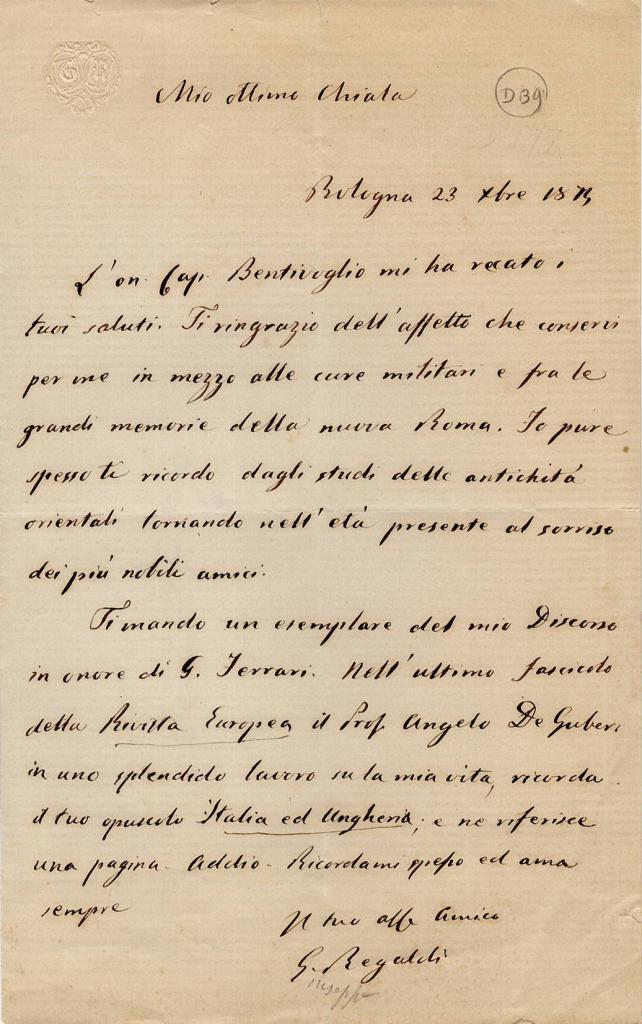 G R
Mio ottimo Chiala
DB9
Bologna 23 Xbre 1873
L'on. Cap. Bentivoglio mi ha recato i
tuoi saluti. Ti ringrazio dell'affetto che conservi
per me in mezzo alle cure militari e fra le
grandi memorie della nuova Roma. Io pure
spesso ti ricordo dagli studi delle antichità
orientali tornando nell'età presente al sorriso
dei più nobili amici.
Ti mando un esemplare del mio Discorso
in onore di G. Ferrari. Nell'ultimo fascicolo
della Rivista Europea il Prof. Angelo De Guber.
in uno splendido lavoro su la mia vita, ricorda
il tuo opuscolo Italia ed Ungheria; e ne riferisce
una pagina - Addio - Ricordami spesso ed ama
sempre
Il tuo affe Amico
G. Regaldi
iuseppe